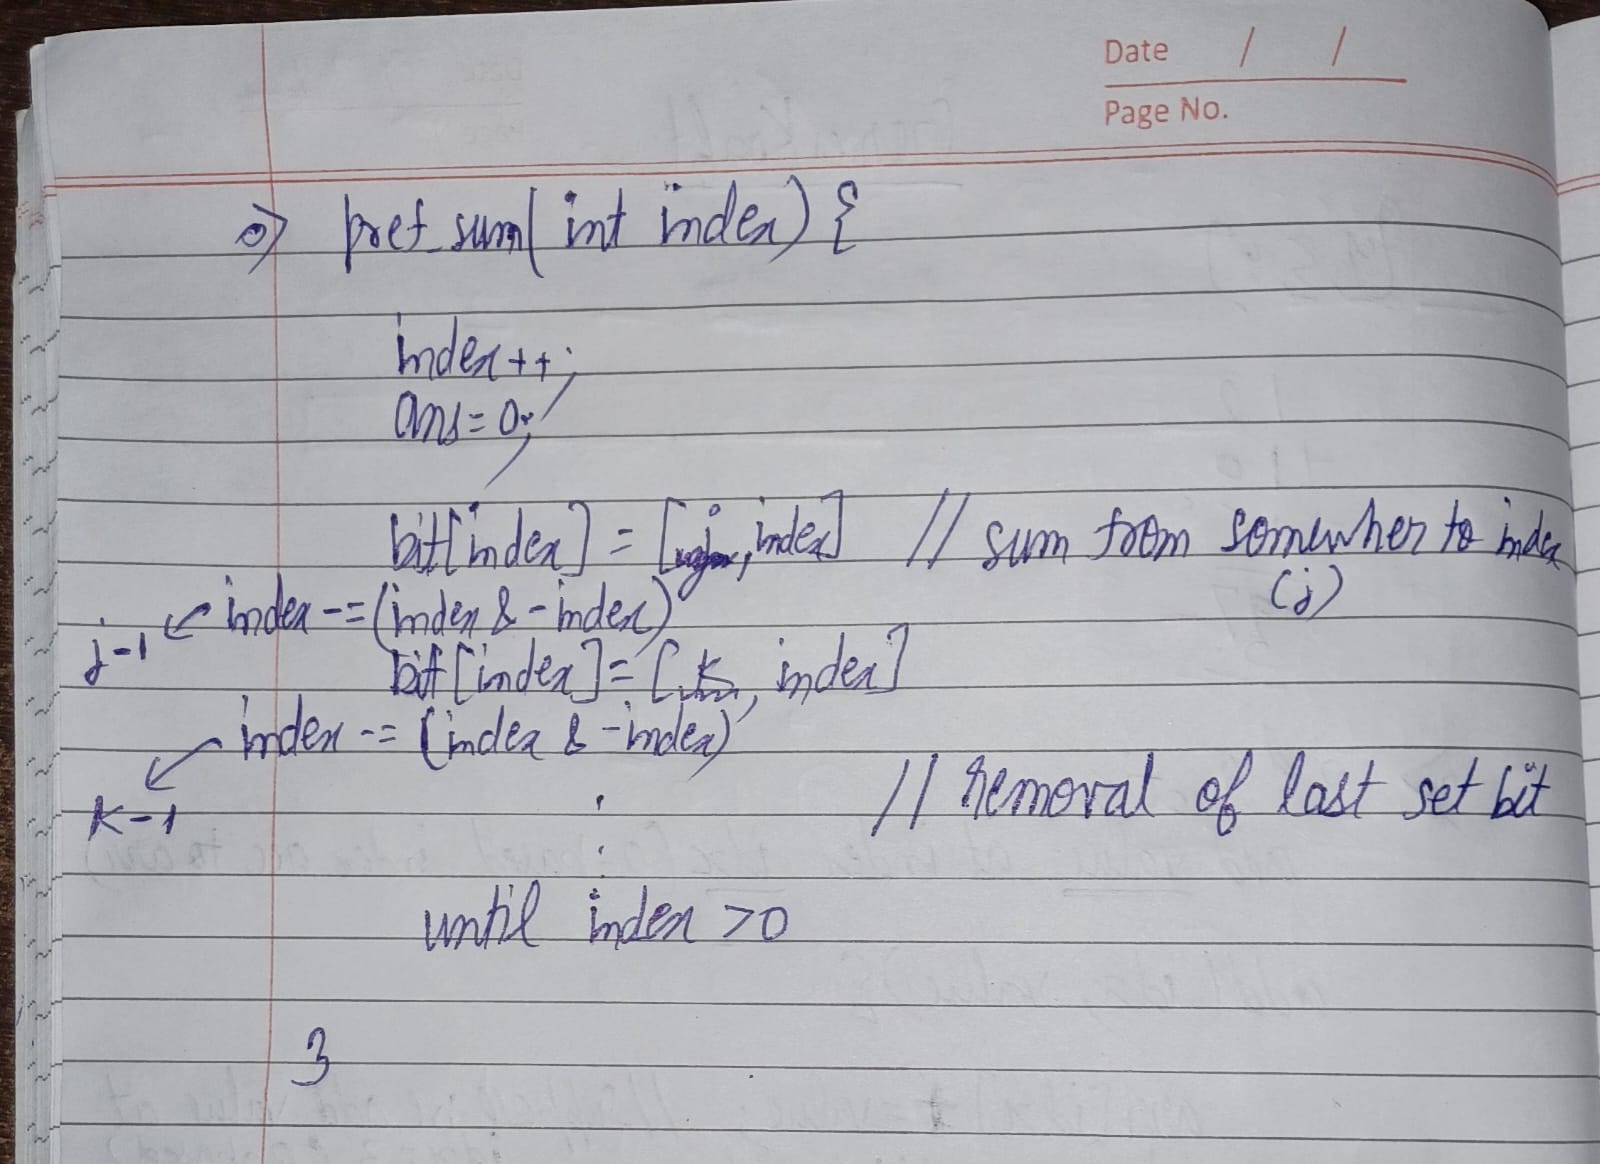 Date / /
Page No.
⇒ pref_sum(int index) {
index++;
ans=0;
bit[index] = [j, index] // sum from somewher to index
(j)
j-1 ← index -= (index & -index)
bit[index] = [k, index]
k-1 ← index -= (index & -index)
// removal of last set bit
:
until index >0
}